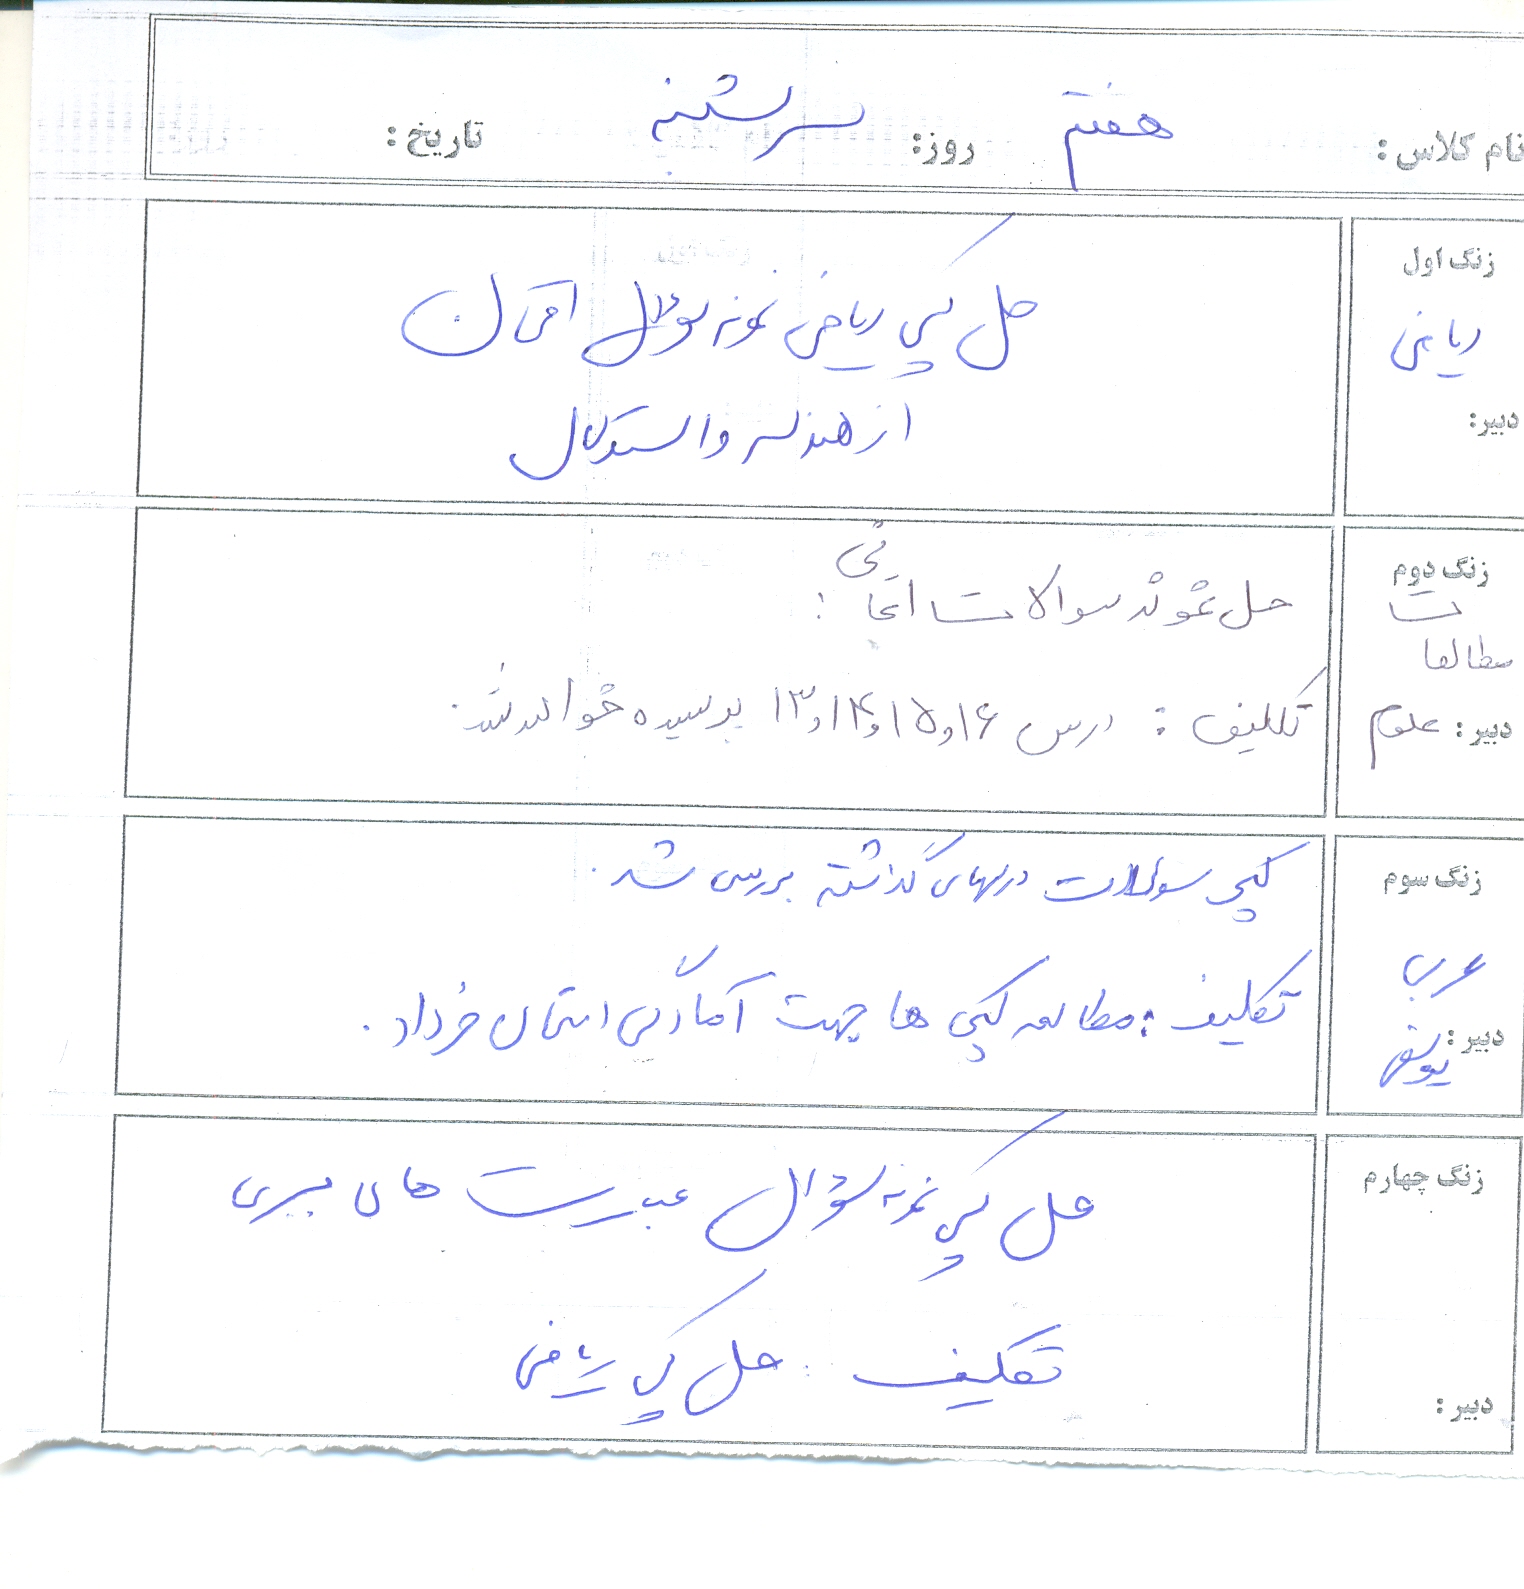 نام کلاس : هفتم روز: سه شنبه تاریخ :
زنگ اول
ریاضی
دبیر:
حل کپی ریاضی نمونه سوال امتحان
از هندسه و استدلال
زنگ دوم
مطالعات
دبیر : علوم
حل نمونه سوالات امتحانی :
تکلیف : درس ۱۶و۱۵و۱۴و۱۳ پرسیده خواهد شد.
زنگ سوم
عربی
دبیر : یوسفی
کپی سوالات درسهای گذشته بررسی شد.
تکلیف : مطالعه کپی ها جهت آمادگی امتحان خرداد.
زنگ چهارم
دبیر :
حل کپی نمونه سؤال عبارت های جبری
تکلیف : حل کپی ریاضی